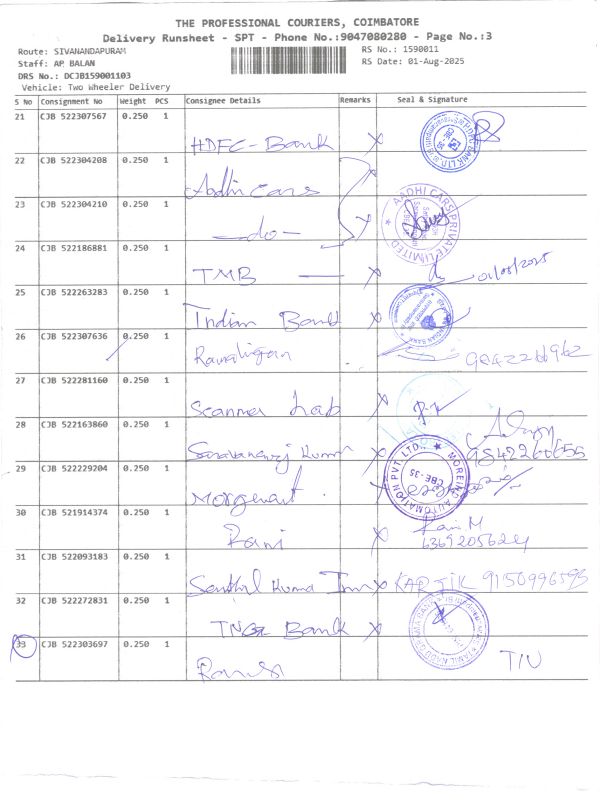 THE PROFESSIONAL COURIERS, COIMBATORE
Delivery Runsheet - SPT - Phone No.:9047080280 - Page No.:3
Route: SIVANANDAPURAM RS No.: 1590011
Staff: AP BALAN RS Date: 01-Aug-2025
DRS No.: DCJB159001103
Vehicle: Two Wheeler Delivery
S No Consignment No Weight PCS Consignee Details Remarks Seal & Signature
21 CJB 522307567 0.250 1
HDFC - Bank x
22 CJB 522304208 0.250 1
Aadhi Cars x
23 CJB 522304210 0.250 1
AADHI CARS PRIVATE LIMITED
-do-
24 CJB 522186881 0.250 1
TMB x 01/08/2025
25 CJB 522263283 0.250 1
Indian Bank x
26 CJB 522307636 0.250 1
27 CJB 522281160 0.250 1
Scanner Lab x
28 CJB 522163860 0.250 1
9842266655
29 CJB 522229204 0.250 1
AUTOMATION PVT. LTD.
CBE-35
30 CJB 521914374 0.250 1
Rani x Rani M
31 CJB 522093183 0.250 1
x KARTIK 9150996593
32 CJB 522272831 0.250 1
Bank x
33 CJB 522303697 0.250 1